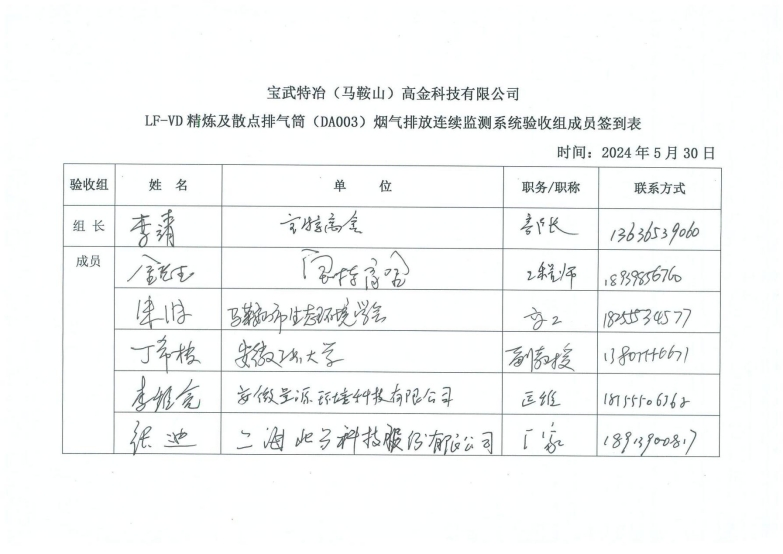 宝武特冶（马鞍山）高金科技有限公司
LF-VD 精炼及散点排气筒（DA003）烟气排放连续监测系统验收组成员签到表
时间：2024 年 5 月 30 日
验收组 姓 名 单 位 职务/职称 联系方式
组 长 李靖 宝特高金 部长 13636539060
成员 宝特高金 工程师 18939856760
马鞍山市生态环境学会 高工 18255534577
丁希楼 安徽工业大学 副教授
李维亮 安徽 环境科技有限公司 运维
张迪 上海北分科技股份有限公司 厂家 18913900817